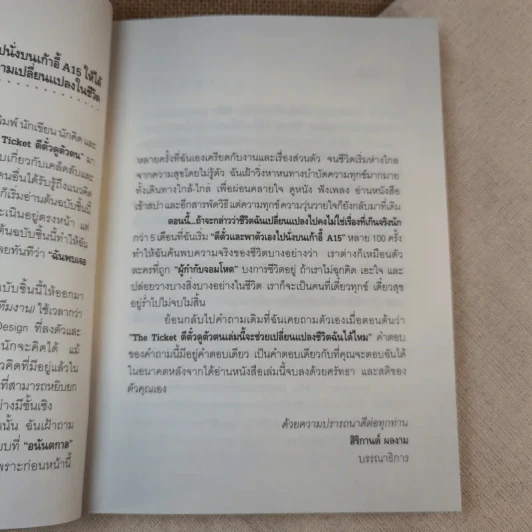 ปนั่งบนเก้าอี้ A15 ให้ได้
ามเปลี่ยนแปลงในชีวิต
พิมพ์ นักเขียน นักคิด และ
Ticket ตีตั๋วดูตัวตน" มา
บเกี่ยวกับเคล็ดลับและ
คนอื่นได้รับรู้ถึงแนวคิด
ก็เริ่มอ่านต้นฉบับชิ้นนี้
ะเนินอยู่ตรงหน้า แต่
ฉบับชิ้นนี้ทำให้ฉัน
ลยทันทีว่า "ฉันพบเจอ
ฉบับชิ้นนี้ให้ออกมา
ทีมงาน) ใช้เวลากว่า
Design ที่ลงตัวและ
นักจะคิดได้ แม้
วคิดที่มีอยู่แล้วใน
ที่สามารถหยิบยก
างมีชั้นเชิง
านั้น ฉันเฝ้าถาม
บบที่ "อนันตกาล"
เพราะก่อนหน้านี้
หลายครั้งที่ฉันเองเครียดกับงานและเรื่องส่วนตัว จนชีวิตเริ่มห่างไกล
จากความสุขโดยไม่รู้ตัว ฉันเฝ้าวิ่งหาหนทางบำบัดความทุกข์มากมาย
ทั้งเดินทางใกล้-ไกล เพื่อผ่อนคลายใจ ดูหนัง ฟังเพลง อ่านหนังสือ
เข้าสปา และอีกสารพัดวิธี แต่ความทุกข์ความวุ่นวายใจก็ยังกลับมาที่เดิม
ตอนนี้...ถ้าจะกล่าวว่าชีวิตฉันเปลี่ยนแปลงไปคงไม่ใช่เรื่องที่เกินจริงนัก
กว่า 5 เดือนที่ฉันเริ่ม "ตีตั๋วและพาตัวเองไปนั่งบนเก้าอี้ A15" หลาย 100 ครั้ง
ทำให้ฉันค้นพบความจริงของชีวิตบางอย่างว่า เราต่างก็เหมือนตัว
ละครที่ถูก "ผู้กำกับจอมโหด" บงการชีวิตอยู่ ถ้าเราไม่ฉุกคิด เอะใจ และ
ปล่อยวางบางสิ่งบางอย่างในชีวิต เราก็จะเป็นคนที่เดี๋ยวทุกข์ เดี๋ยวสุข
อยู่ร่ำไปไม่จบไม่สิ้น
ย้อนกลับไปคำถามเดิมที่ฉันเคยถามตัวเองเมื่อตอนต้นว่า
"The Ticket ตีตั๋วดูตัวตนเล่มนี้จะช่วยเปลี่ยนแปลงชีวิตฉันได้ไหม" คำตอบ
ของคำถามนี้มีอยู่คำตอบเดียว เป็นคำตอบเดียวกับที่คุณจะตอบฉันได้
ในอนาคตหลังจากได้อ่านหนังสือเล่มนี้จบลงด้วยศรัทธา และสติของ
ตัวคุณเอง
ด้วยความปรารถนาดีต่อทุกท่าน
สิริกานต์ ผลงาม
บรรณาธิการ